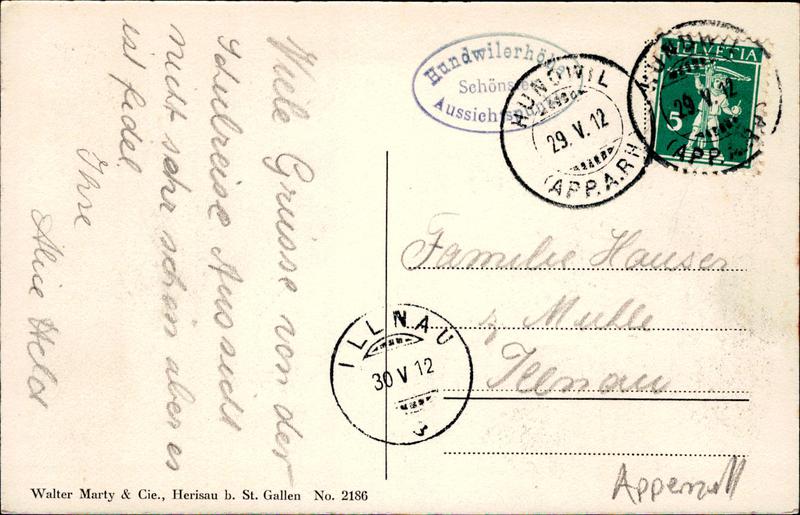 Viele Grüsse von der
Schulreise Aussicht
nicht sehr schön aber es
ist fidel.
Ihre
Alice Held
Hundwilerhöhe
Schönster
Aussichtspunkt
HUNDWIL
29.V.12
(APP.A.RH
HUNDWIL
29.V.12
(APP.A.RH
HELVETIA
5
Familie Hauser
z. Mühle
Illnau
ILLNAU
30 V 12
Appenzell
Walter Marty & Cie., Herisau b. St. Gallen No. 2186